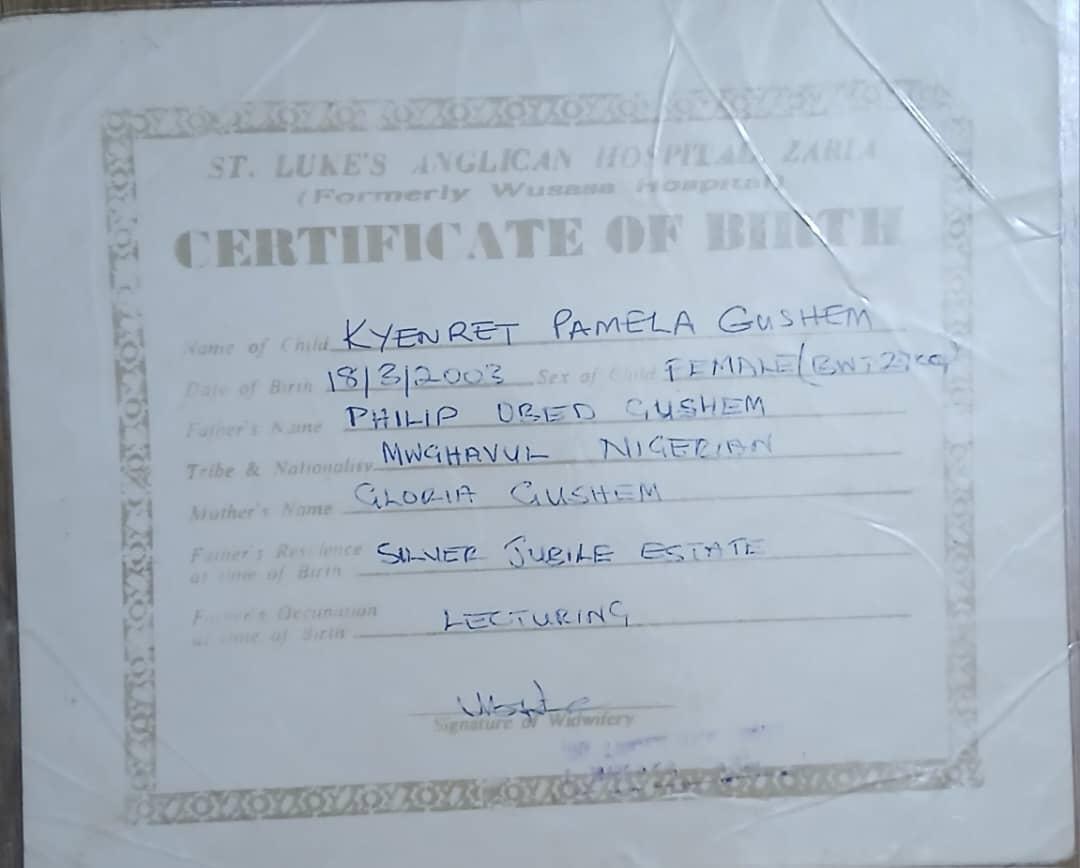 ST. LUKE'S ANGLICAN HOSPITAL ZARIA
(Formerly Wusasa Hospital)
CERTIFICATE OF BIRTH
Name of Child KYENRET PAMELA GUSHEM
Date of Birth 18/3/2003 Sex of Child FEMALE (BWT 2.7KG)
Father's Name PHILIP OBED GUSHEM
Tribe & Nationality MWGHAVUL NIGERIAN
Mother's Name GLORIA GUSHEM
Father's Residence SILVER JUBILE ESTATE
at time of Birth
Father's Occupation LECTURING
at time of Birth
Signature of Widwifery